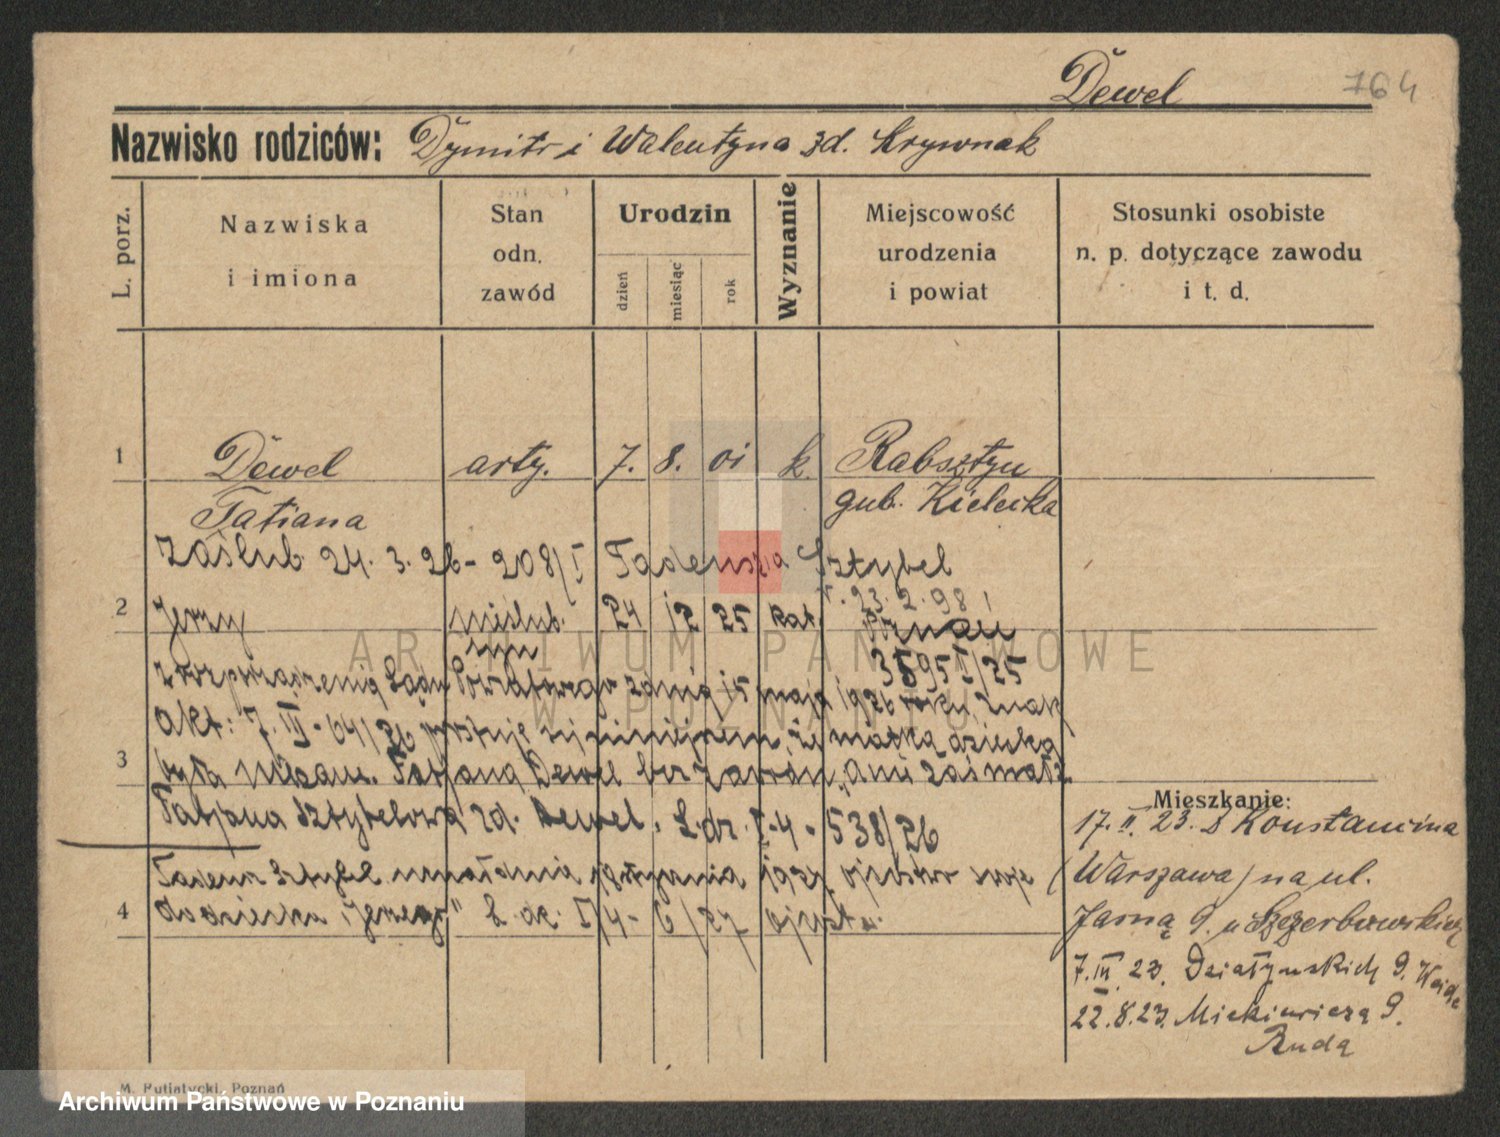 Dewel 764
Nazwisko rodziców: Dymitr i Walentyna zd. Krywnak
L. porz.
Nazwiska i imiona
Stan odn. zawód
Urodzin
dzień miesiąc rok
Wyznanie
Miejscowość urodzenia i powiat
Stosunki osobiste n. p. dotyczące zawodu i t. d.
1 Dewel arty. 7. 8. 01 k. Rabsztyn
Tatiana gub. Kielecka
zaślub. 24. 3. 26 - 208/I Tadeusza Sztybel
r. 23. 2. 98
2 Jerzy nieślub. 24 12 25 kat. Poznań
syn 3595 I/25
Z rozporządzenia Sądu Powiatowego z dnia 15 maja 1926 roku, znak
Akt: 7. III - 64/26 się niniejszem, że matka dziecka
3 była Tatjana Dewel bez zawodu, a nie zaś
Tatjana Sztybelowa zd. Dewel. L. dz. I-4-538/26
Tadeusz Sztybel stycznia 1927 ojcostwo swoje
4 do dziecka "Jerzego" L. dz. I/4 - 6/27
Mieszkanie:
17. II. 23. z Konstancina
(Warszawa) na ul.
Jasną 9. u Szczerbowskiej
7. III. 23. Działyńskich 9.
22. 8. 23. Mickiewicza 9.
Ruda
M. Putiatycki, Poznań
ARCHIWUM PAŃSTWOWE
W POZNANIU
Archiwum Państwowe w Poznaniu